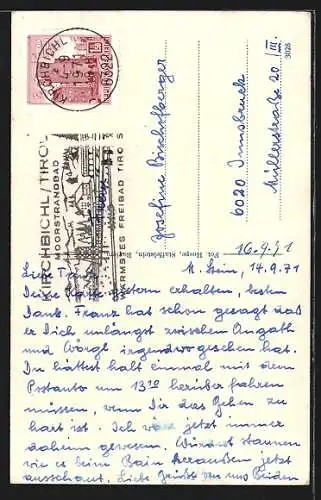 KIRCHBICHL
6322
KIRCHBICHL/TIROL
MOORSTRANDBAD
WARMSTES FREIBAD TIROLS
Josefine Bischofberger
6020 Innsbruck
Müllerstraße 20/III.
3025
16.9.71
M. Stein, 14.9.71
Liebe
Deine Karte gestern erhalten, besten
Dank. Franz hat schon gesagt daß
er Dich unlängst zwischen Angath
und Wörgl irgendwo gesehen hat.
Du hättest halt einmal mit dem
Postauto um 13¹⁰ herüber fahren
müssen, wenn Dir das Gehen zu
hart ist. Ich wär jetzt immer
daheim gewesen. Würdest staunen
wie es beim Bain heraußen jetzt
ausschaut. Liebe Grüße von uns Beiden